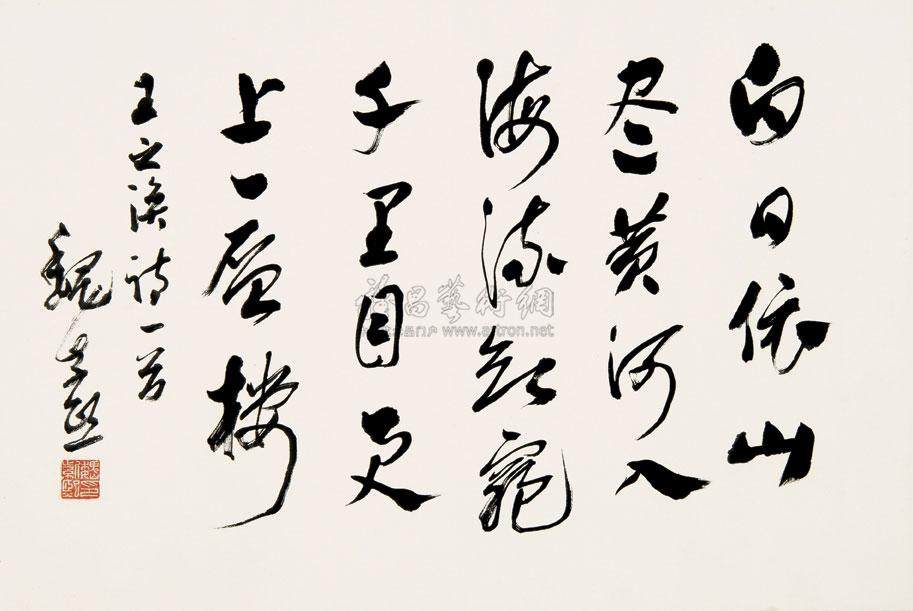 白日依山
尽黄河入
海流欲窮
千里目更
上一層樓
王之涣诗一首
魏
昌藝術網
www.artron.net